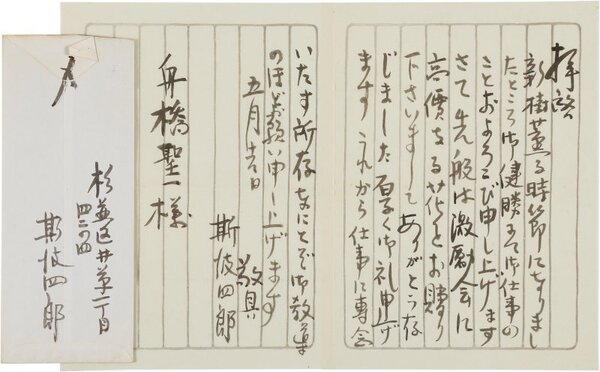 拝啓
新樹薫る時節になりまし
たところ御健勝にて御仕事の
ことおよろこび申し上げます
さて先般は激励会に
高價なる花をお贈り
下さいまして ありがとう存
じました 厚く御礼申上げ
ます これから仕事に専念
いたす所存 なにとぞ御教導
のほどお願い申し上げます
敬具
五月
斯波四郎
舟橋聖一様
〆
杉並区井草一丁目
斯波四郎